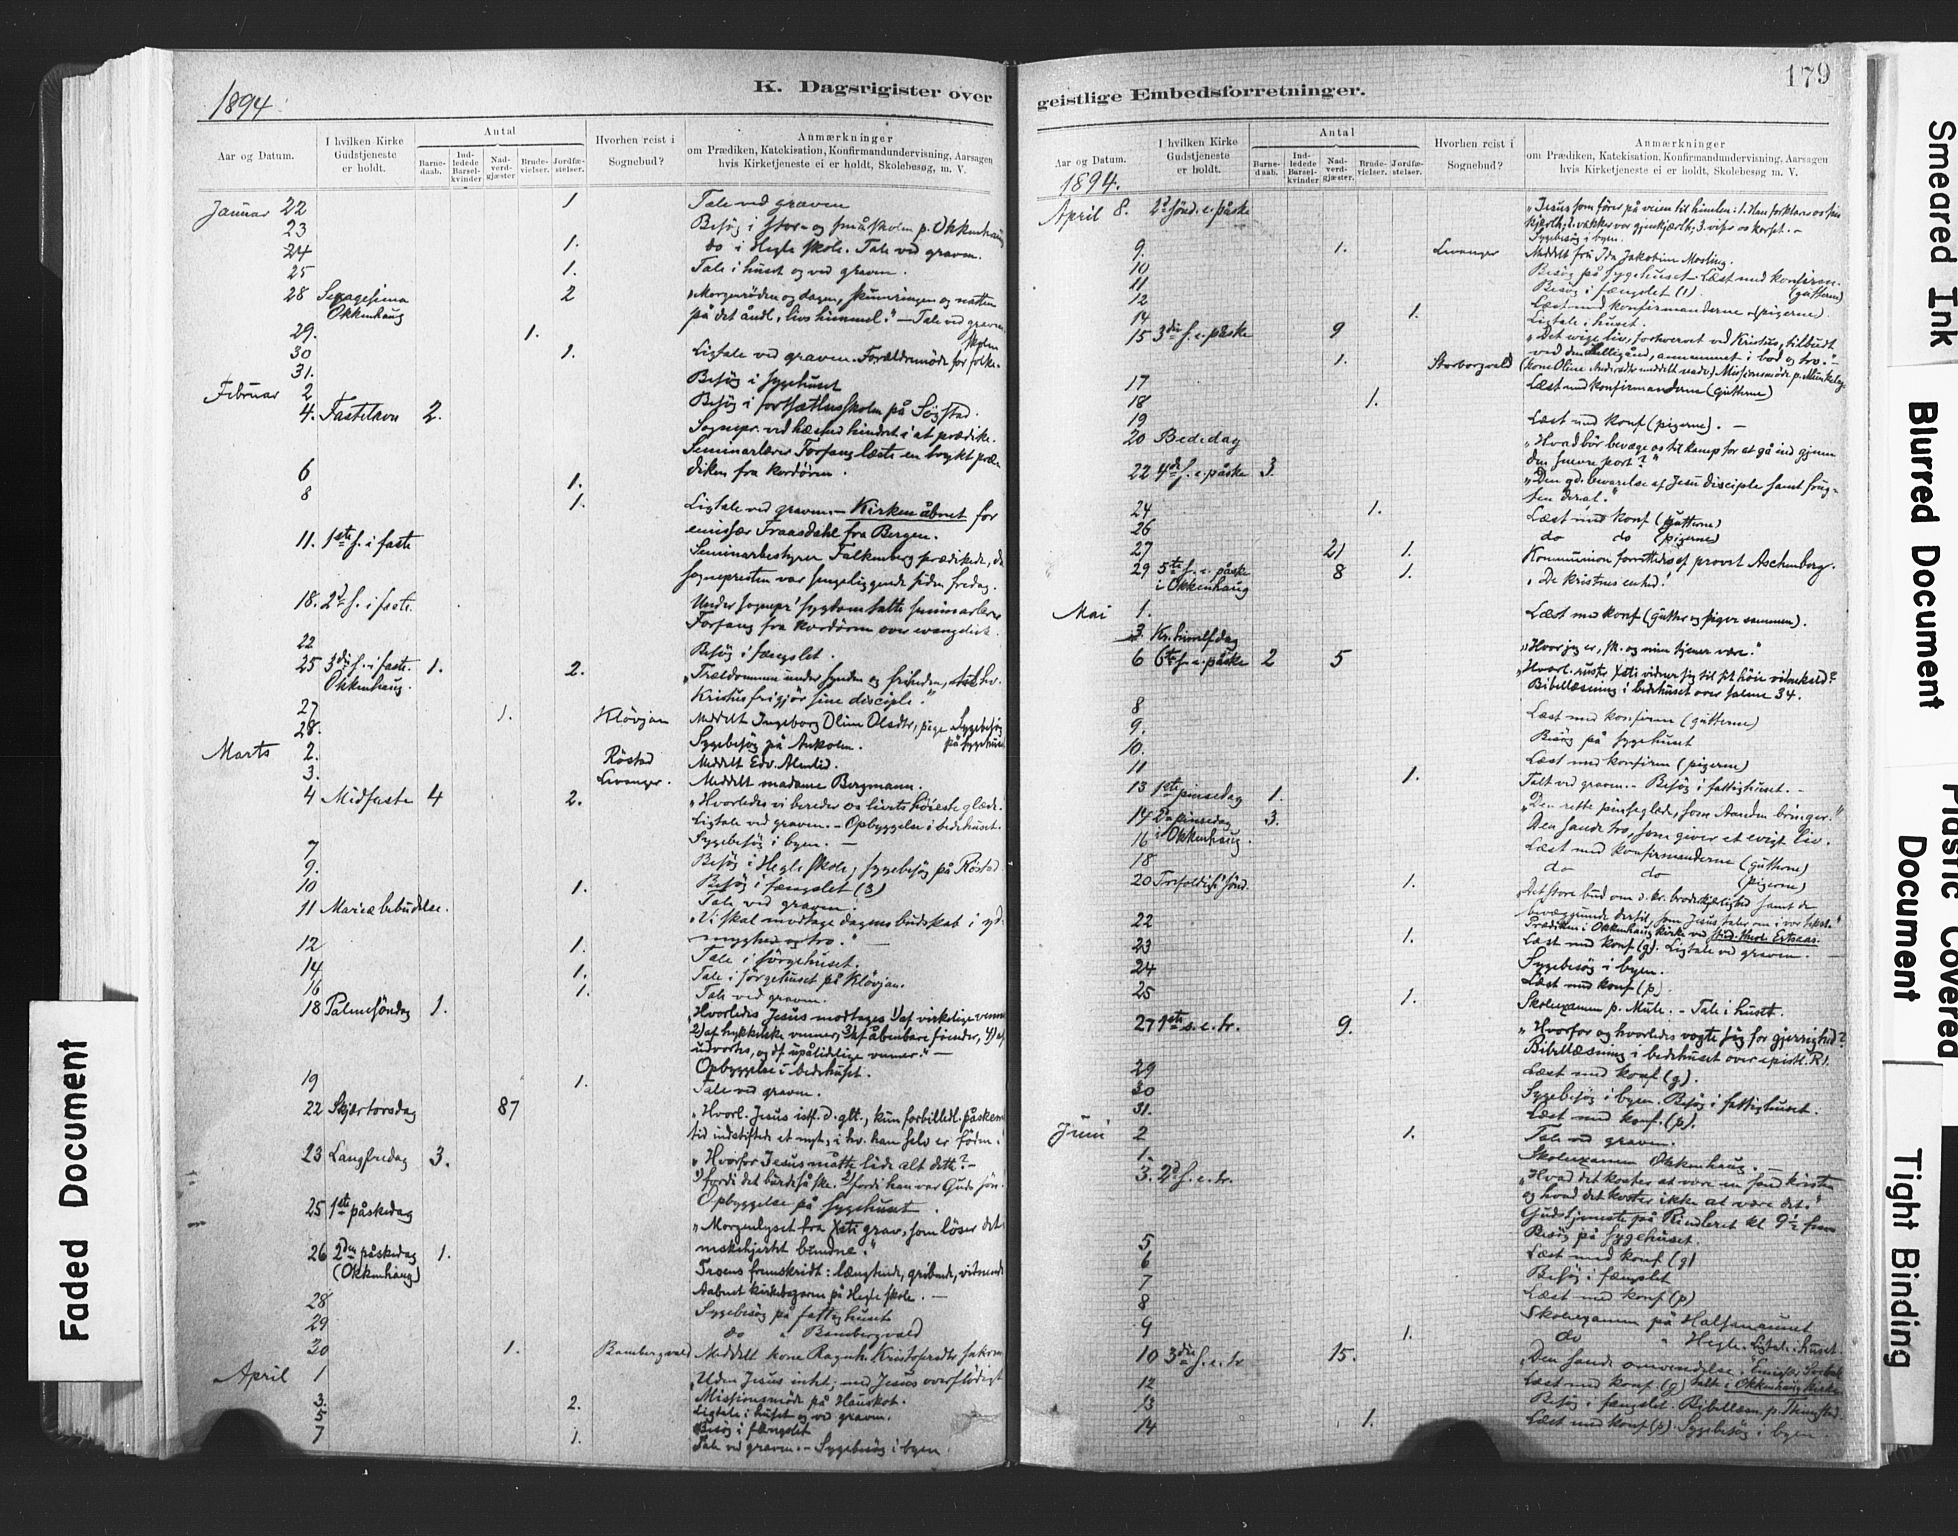 179
K. Dagsrigister over
geistlige Embedsforretninger.
1894.
Aar og Datum.
I hvilken Kirke Gudstjeneste er holdt.
Antal
Barne-daab.
Ind-ledede Barsel-kvinder
Nad-verd-gjæster
Brude-vielser.
Jordfæ-stelser.
Hvorhen reist i Sognebud?
Anmærkninger
om Prædiken, Katekisation, Konfirmandundervisning, Aarsagen
hvis Kirketjeneste ei er holdt, Skolebesøg, m. V.
Januar 22 1 Tale ved graven
23 Besøg i stor- og småskolen p. Okkenhaug
24 1. do i Hegle skole. Tale ved graven.
25 1. Tale i huset og ved graven.
28 Sexagesima 2 "Morgenrøden og dagen, skumringen og natten
Okkenhaug på det åndl. livs himmel." — Tale ved graven.
29. 1.
30 1. Ligtale ved graven. Forældremøde for folke-
skolen
31. Besøg i sygehuset
Februar 2 Besøg i fortsættelsesskolen på Søgstad.
4. Fastelavn 2. Sognepr. ved hæshed hindret i at prædike.
Seminarlærer Forfang læste en trykt præ-
diken fra kordøren.
6 1.
8 1. Ligtale ved graven. — Kirken åbnet for
emissær Traasdahl fra Bergen.
11. 1ste s. i faste Seminarbestyrer Falkenberg prædikede, da
sognepresten var sengeliggende siden fredag.
18. 2d s. i faste Under sognepr' sygdom talte seminarlærer
Forfang fra kordøren over evangeliet.
22 Besøg i fængslet.
25 3die s. i faste. 1. 2. "Trældommen under synden og friheden,
Okkenhaug. Kristus frigjør sine disciple".
27 1. Kløvjan Meddelt Ingeborg Olina Olsdtr, pige. Sygebesøg
på sygehuset
28. Sygebesøg på
Marts 2. Røstad Meddelt Edv. Almlid.
3. Levanger. Meddelt madame Bergmann.
4 Midfaste 4 2. "Hvorledes vi bereder os livets høieste glæde.
Ligtale ved graven. — Opbyggelse i bedehuset.
7 Sygebesøg i byen. —
9. Besøg i Hegle skole, sygebesøg på Røstad
10 1. Besøg i fængslet (3)
Tale ved graven.
11 Mariæ bebudelse. "Vi skal modtage dagens budskab i yd-
myghed og tro." —
12 1. Tale i sørgehuset.
14 1. Tale i sørgehuset på Kløvjan.
16 1. Tale ved graven.
18 Palmesøndag 1. "Hvorledes Jesus modtages 1) af virkelige venner
2) af hykkelske venner, 3) af åbenbare fiender, 4) af
udvortes, og af upålidelige venner." —
Opbyggelse i bedehuset.
19 1. Tale ved graven.
22 Skjærtorsdag 87 "Hvorl. Jesus istf. d. glt., kun forbilledl. påskemål-
tid indstiftede et nyt, i hv. han selv er
23 Langfredag 3. "Hvorfor Jesus måtte lide alt dette? —
1) fordi det burde så ske. 2) fordi han var Guds søn.
Opbyggelse på sygehuset.
25 1ste påskedag "Morgenlyset fra Xsti grav, som løser det
mskehjertet bundne."
26 2den påskedag 1. Troens fremskridt: længtende, gribende, vitnende
(Okkenhaug) Aabnet kirkegaren på Hegle skole. —
28 Sygebesøg på fattighuset
29 do " Bambergvald
30 1. Bambergvald Meddelt kone Ragnh. Kristofersdtr
April 1 "Uden Jesus intet, med Jesus overflødigt
3. 2. Missionsmøde på Hauskot.
Ligtale i huset og ved graven.
5. Besøg i fængslet
7 1. Tale ved graven. — Sygebesøg i byen
Aar og Datum.
I hvilken Kirke Gudstjeneste er holdt.
Antal
Barne-daab.
Ind-ledede Barsel-kvinder
Nad-verd-gjæster.
Brude-vielser.
Jordfæ-stelser.
Hvorhen reist i Sognebud?
Anmærkninger
om Prædiken, Katekisation, Konfirmandundervisning, Aarsagen
hvis Kirketjeneste ei er holdt, Skolebesøg, m. V.
1894.
April 8. 2d sønd. e. påske "Jesus som fører på veien til himlen: 1. Han forklares os sin
kjærlh; 2. vækker vor gjenkjærlh; 3. viser os korset. —
Sygebesøg i byen.
9. 1. Levanger Meddelt fru Ida Jakobine Mosling.
10 Besøg på sygehuset. Læst med konfirm.
(gutterne)
11 Besøg i fængslet (1).
12 Læst med konfirmanderne (pigerne)
14 1. Ligtale i huset.
15 3die s. e. påske 9 "Det evige liv, forhvervet ved Kristus, tilbudt
ved den Helligånd, annammet i bod og tro." —
1. Storborgvald (kone Oline Andreasdtr meddelt nadv.) Missionsmøde p. Munkeby.
17 Læst med konfirmanderne (gutterne)
18 1.
19 Læst med konf (pigerne). —
20 Bededag "Hvad bør bevæge os til kamp for at gå ind gjennem
den snevre port?"
22 4de s. e. påske 3. "Den gd. bevarelse af Jesu disciple samt frug-
ten deraf."
24 1. Læst med konf (gutterne)
26 do do (pigerne)
27 21 1. Kommunion forrettedes af provst Aschenberg.
29 5te s. e. påske 8 1. "De kristnes enhed."
i Okkenhaug
Mai 1. Læst med konf (gutter og piger sammen).
3. Kr. himelf.dag "Hvor jeg er, sk. og min tjener være."
6 6te s. e. påske 2 5 "Hvorl. ruster Xsti vidner sig til sit høie vitnekald?
Bibellæsning i bedehuset over salme 34.
8 Læst med konfirm (gutterne)
9. Besøg på sygehuset
10. Læst med konfirm (pigerne)
11 1. Talt ved graven. — Besøg i fattighuset. —
13 1ste pinsedag 1. "Den rette pinseglæde, som Aanden bringer."
14 2. pinsedag 3. Den sande tro, som giver et evigt liv.
i Okkenhaug.
16 Læst med konfirmanderne (gutterne)
18 do do (pigerne)
20 Trefoldigh. sønd. 1. "Det store bud om d. kr. broderkjærlighed samt de
bevæggrunde dertil, som Jesus taler om i vor tekst."
Prædiken i Okkenhaug kirke ved stud. theol. Eftsaas.
22 Læst med konf (g). Ligtale ved graven. —
23 1. Sygebesøg i byen.
24 Læst med konf (p).
25 1. Skoleexamen p. Mule. — Tale i huset.
27 1ste s. e. tr. 9. "Hvorfor og hvorledes vogte sig for gjerrighed?
Bibellæsning i bedehuset over epistl. R1.
29 Læst med konf (g).
30 Sygebesøg i byen. Besøg i fattighuset.
31. Læst med konf. (p).
Juni 2 1. Tale ved graven.
1. Skoleexamen Okkenhaug. —
3. 2d s. e. tr. "Hvad det koster at være en sand kristen
og hvad det koster ikke at være det."
Gudstjeneste på Rinnleret kl 9½ form
5 Besøg på sygehuset.
6 Læst med konf (g)
7 Besøg i fængslet
8 Læst med konf (p)
9 1. Skoleexamen på Halsanaunet
do " Hegle. Ligtale i huset.
10 3die s. e. tr 15. "Den sande omvendelse."
talte i Okkenhaug kirke
12 Læst med konf (g)
13 Besøg i fængslet. Bibellæsn. p. Thinstad.
14 1. Læst med konf (p). Sygebesøg i byen.
Faded Document
Smeared Ink
Blurred Document
Plastic Covered
Document
Tight Binding